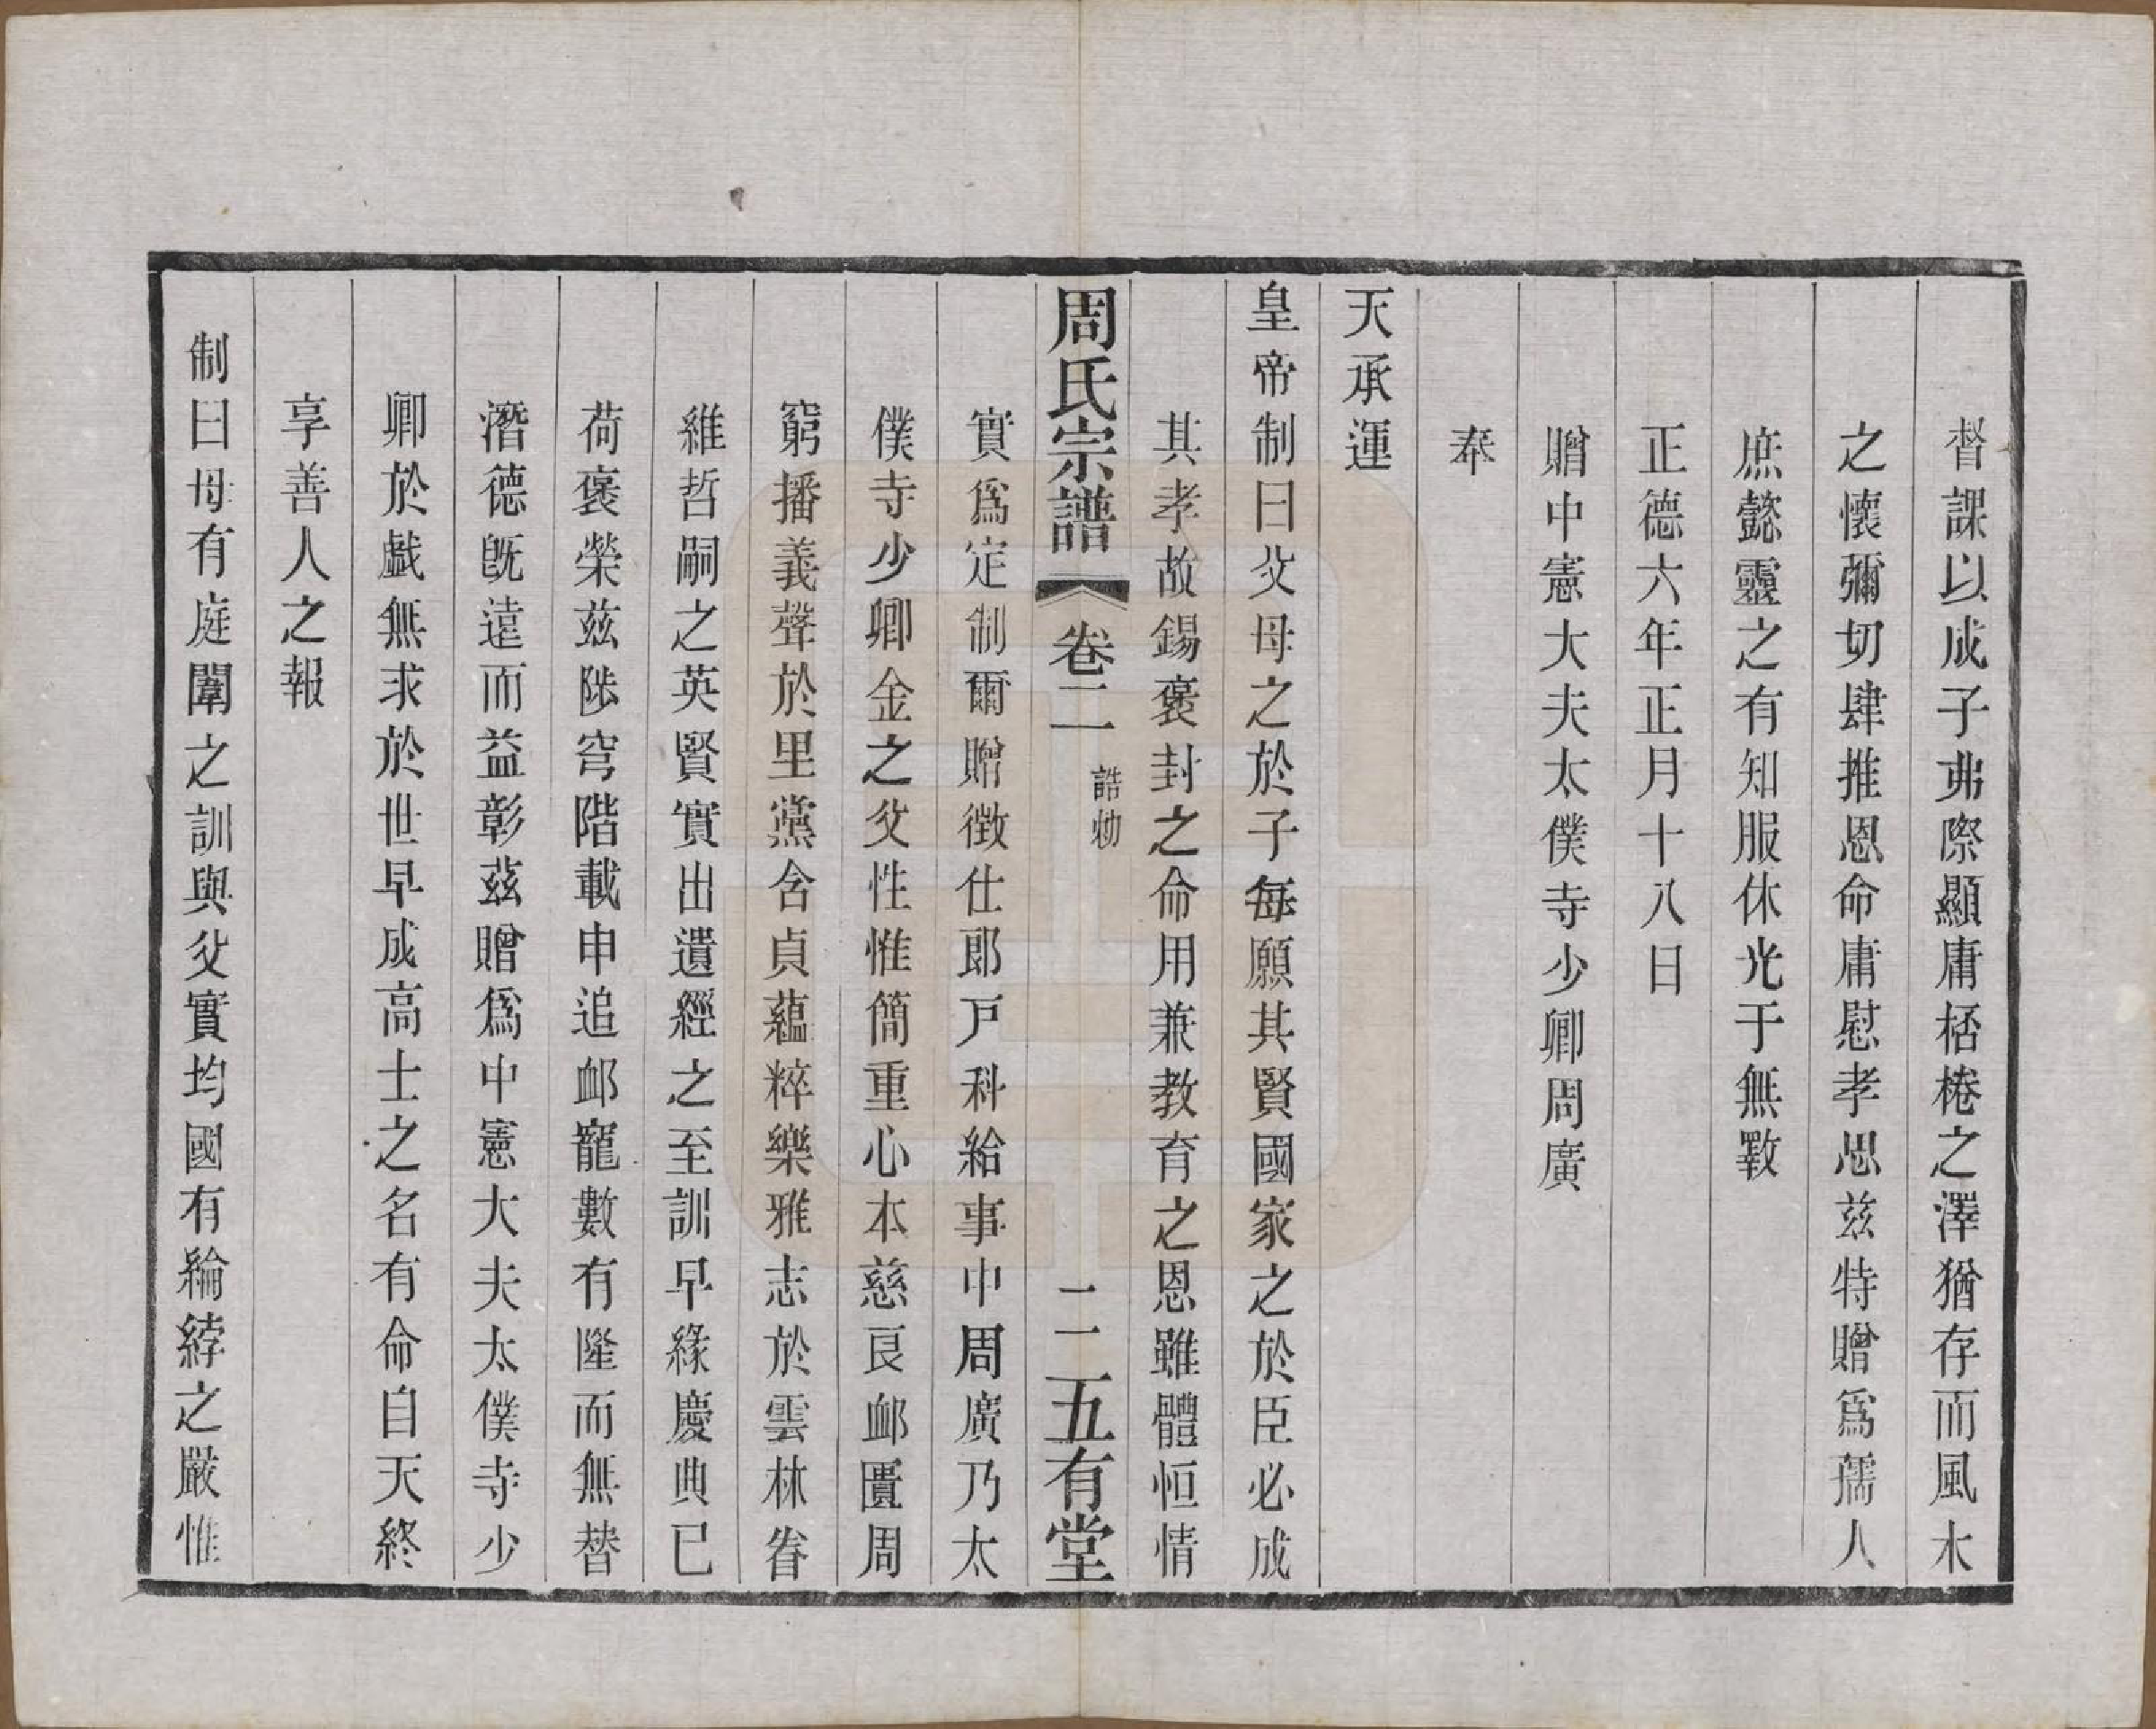 督課以成子弗際顯庸桮棬之澤猶存而風木
之懷彌切肆推恩命庸慰孝思茲特贈爲孺人
庶懿靈之有知服休光于無斁
正德六年正月十八日
贈中憲大夫太僕寺少卿周廣
奉
天承運
皇帝制曰父母之於子每願其賢國家之於臣必成
其孝故錫褒封之命用兼教育之恩雖體恒情
周氏宗譜
卷二
誥勅
二
五有堂
實爲定制爾贈徵仕郎戸科給事中周廣乃太
僕寺少卿金之父性惟簡重心本慈良卹匱周
窮播義聲於里黨含貞蘊粹樂雅志於雲林眷
維哲嗣之英賢實出遺經之至訓早緣慶典已
荷褒榮茲陟穹階載申追卹寵數有隆而無替
潛德旣遠而益彰茲贈爲中憲大夫太僕寺少
卿於戲無求於世早成高士之名有命自天終
享善人之報
制曰母有庭闈之訓與父實均國有綸綍之嚴惟